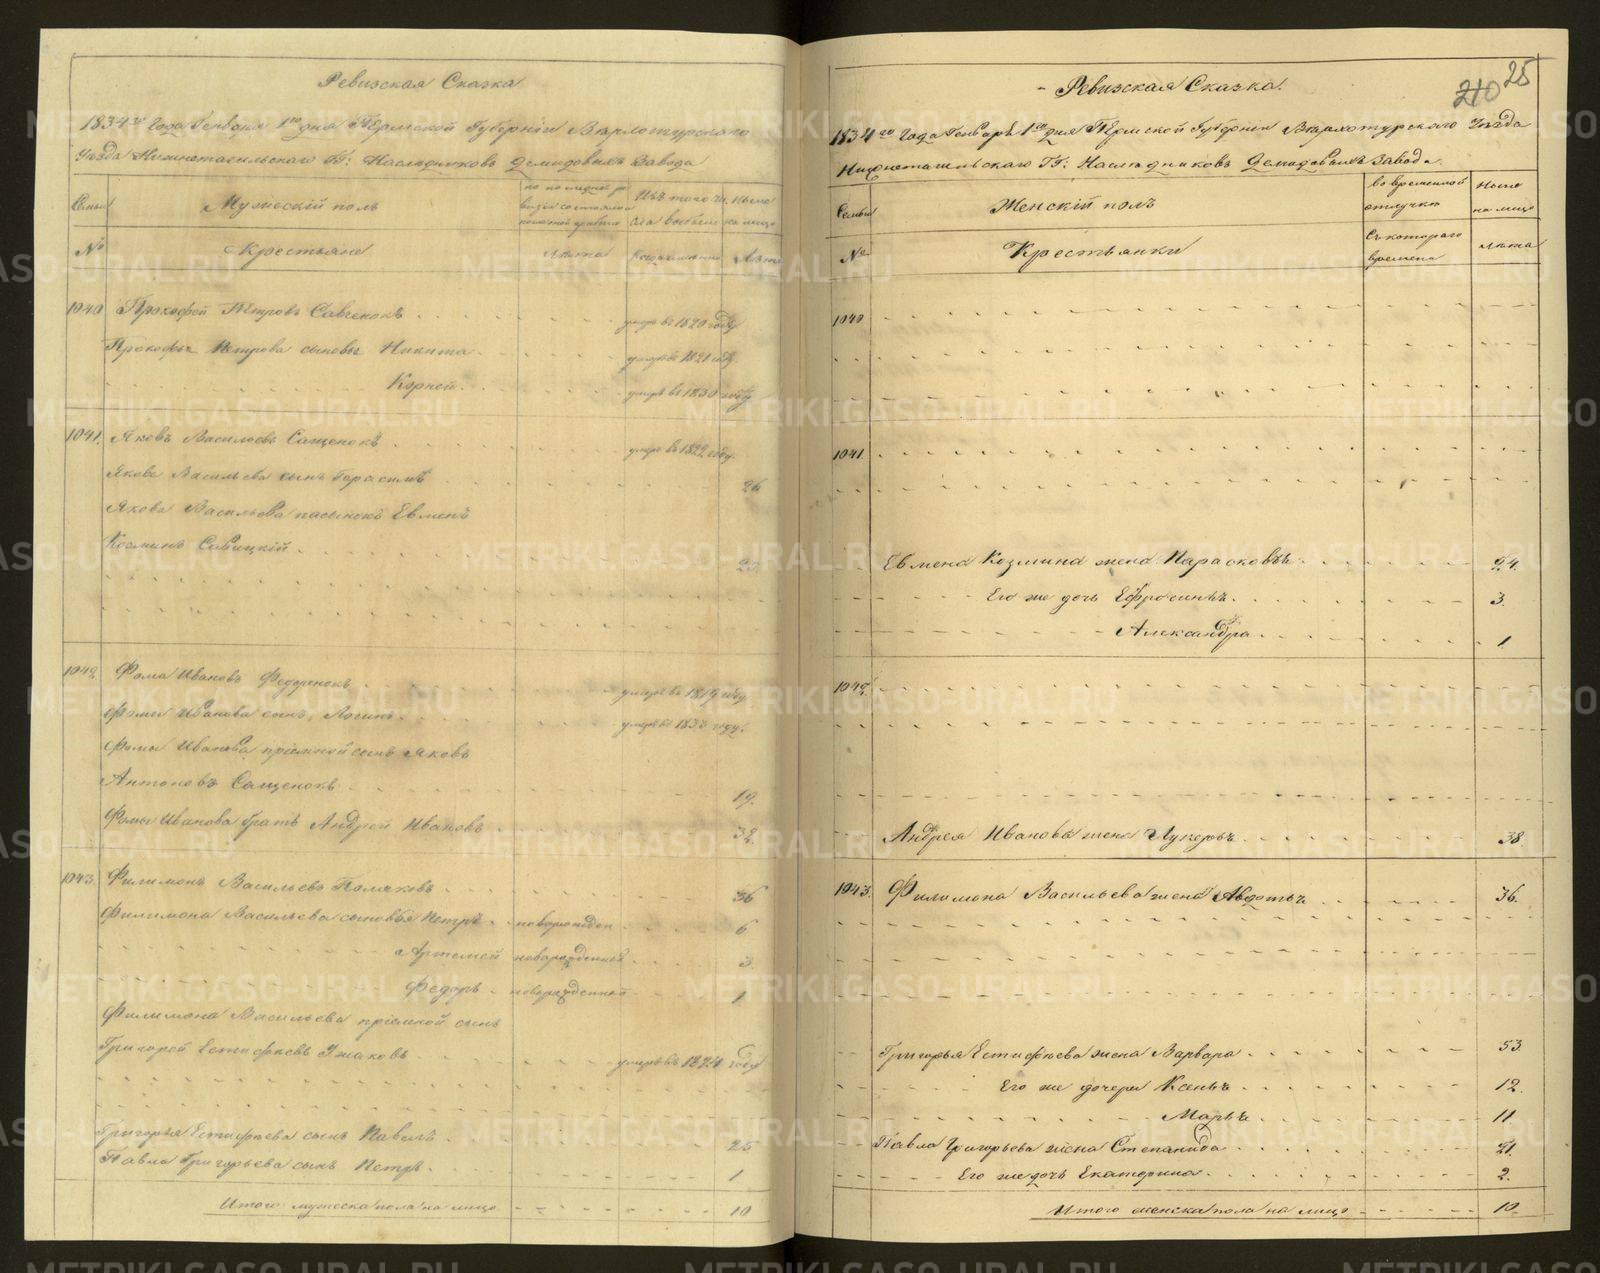 Ревизская Сказка
1834го Года Генваря 1го дня Пермской Губернiи Верхотурскаго
Уезда Нижнетагильскаго Гг: Наследниковъ Демидовыхъ Завода
Семьи
Мужескiй полъ
по последней ре
визiи состояло
Изъ того чи
сла выбыло
ныне
на лицо
№
Крестьяне
лета
Лета
1040 Прокофей Петровъ Савченокъ умре въ 1820 году
Прокофья Петрова сыновья Никита умре въ 1821 году
Корней умре въ 1830 году
1041. Яковъ Васильевъ Сащенокъ умре въ 1822 году.
Якова Васильева сынъ Герасимъ 26
Якова Васильева пасынокъ Евменъ
Козминъ Савицкiй 25.
1042. Фома Ивановъ Федоренокъ умре въ 1819 году.
Фомы Иванова сынъ, Логинъ умре въ 1833 году.
Фомы Иванова прiемной сынъ Яковъ
Антоновъ Сащенокъ 19.
Фомы Иванова братъ Андрей Ивановъ 32.
1043. Филимонъ Васильевъ Поляковъ 36
Филимона Васильева сыновья Петръ новорожден 6
Артемей новорожденной 3.
Федоръ новорожденной 1
Филимона Васильева прiемной сынъ
Григорей Естифеевъ Ушаковъ умре въ 1824 году
Григорья Естифеева сынъ Павелъ 25
Павла Григорьева сынъ Петръ 1
Итого мужеска пола на лицо 10
Ревизская Сказка.
210 25
1834го Года Генваря 1го дня Пермской Губернiи Верхотурскаго Уезда
Нижнетагильскаго Гг: Наследниковъ Демидовыхъ Завода
Семьи
Женскiй полъ
во временной
отлучке
ныне
на лицо
№
Крестьянки
Съ котораго
времена
лета
1040
1041.
Евмена Козмина жена Парасковья 24.
Его же дочь Ефросинья 3.
Александра 1
1042.
Андрея Иванова жена Лукерья 38
1043. Филимона Васильева жена Авдотья 36.
Григорья Естифеева жена Варвара 53.
Его же дочери Ксенья 12.
Марья 11.
Павла Григорьева жена Степанида 21.
Его же дочь Екатерина 2.
Итого женска пола на лицо 10.
METRIKI.GASO-URAL.RU